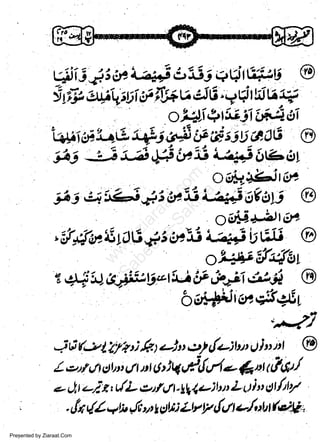 ۳۹۳
۲۵ وَاسْتَبَقَا الْبَابَ وَقَدَّتْ قَمِيْصَهٗ مِنْ دُبُرٍ وَّاَلْفَيَا
سَيِّدَهَا لَدَا الْبَابِ ؕ قَالَتْ مَا جَزَآءُ مَنْ اَرَادَ بِاَهْلِكَ سُوْٓءًا اِلَّآ
اَنْ يُّسْجَنَ اَوْ عَذَابٌ اَلِيْمٌ ○
۲۶ قَالَ هِيَ رَاوَدَتْنِيْ عَنْ نَّفْسِيْ وَشَهِدَ شَاهِدٌ مِّنْ اَهْلِهَا ۚ
اِنْ كَانَ قَمِيْصُهٗ قُدَّ مِنْ قُبُلٍ فَصَدَقَتْ وَهُوَ
مِنَ الْكٰذِبِيْنَ ○
۲۷ وَاِنْ كَانَ قَمِيْصُهٗ قُدَّ مِنْ دُبُرٍ فَكَذَبَتْ وَهُوَ
مِنَ الصّٰدِقِيْنَ ○
۲۸ فَلَمَّا رَاٰ قَمِيْصَهٗ قُدَّ مِنْ دُبُرٍ قَالَ اِنَّهٗ مِنْ كَيْدِكُنَّ ؕ
اِنَّ كَيْدَكُنَّ عَظِيْمٌ ○
۲۹ يُوْسُفُ اَعْرِضْ عَنْ هٰذَا ٚ وَاسْتَغْفِرِيْ لِذَنْۢبِكِ ۖۚ
اِنَّكِ كُنْتِ مِنَ الْخٰطِـِٕيْنَ ○
ترجمہ
۲۵ اور دونوں دروازے کی طرف دوڑے
اور اس عورت نے
دروازے پر پایا۔ اس عورت نے کہا: جو تیرے اہل سے
خیانت کا ارادہ کرے اس کی سزا سوائے زندان یا دردناک عذاب کے کیا ہوگی۔
Presented by Ziaraat.Com